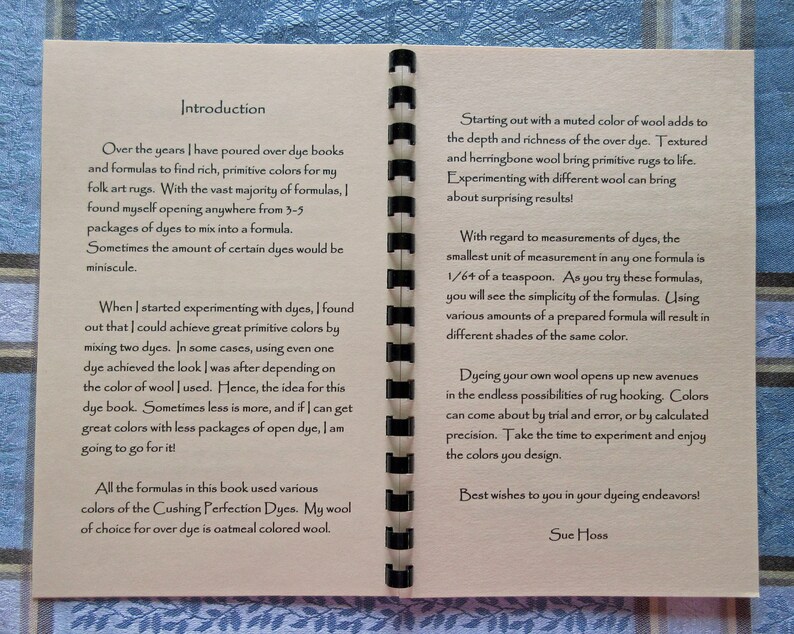 Introduction
Over the years I have poured over dye books
and formulas to find rich, primitive colors for my
folk art rugs. With the vast majority of formulas, I
found myself opening anywhere from 3-5
packages of dyes to mix into a formula.
Sometimes the amount of certain dyes would be
miniscule.
When I started experimenting with dyes, I found
out that I could achieve great primitive colors by
mixing two dyes. In some cases, using even one
dye achieved the look I was after depending on
the color of wool I used. Hence, the idea for this
dye book. Sometimes less is more, and if I can get
great colors with less packages of open dye, I am
going to go for it!
All the formulas in this book used various
colors of the Cushing Perfection Dyes. My wool
of choice for over dye is oatmeal colored wool.
Starting out with a muted color of wool adds to
the depth and richness of the over dye. Textured
and herringbone wool bring primitive rugs to life.
Experimenting with different wool can bring
about surprising results!
With regard to measurements of dyes, the
smallest unit of measurement in any one formula is
1/64 of a teaspoon. As you try these formulas,
you will see the simplicity of the formulas. Using
various amounts of a prepared formula will result in
different shades of the same color.
Dyeing your own wool opens up new avenues
in the endless possibilities of rug hooking. Colors
can come about by trial and error, or by calculated
precision. Take the time to experiment and enjoy
the colors you design.
Best wishes to you in your dyeing endeavors!
Sue Hoss